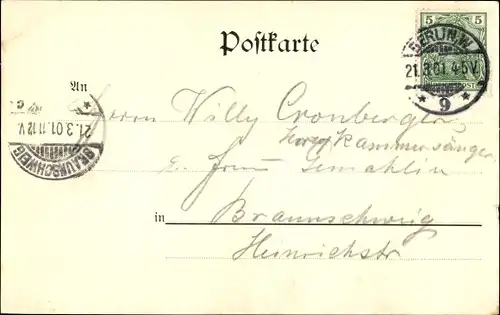 Postkarte
5 5
BERLIN.W.
21.3.01.4-5V.
* 9 *
An
Herrn Willy Cronberger
Kammersänger
u. Frau Gemahlin
BRAUNSCHWEIG
21.3.01.11-12V.
in Braunschweig
Heinrichstr